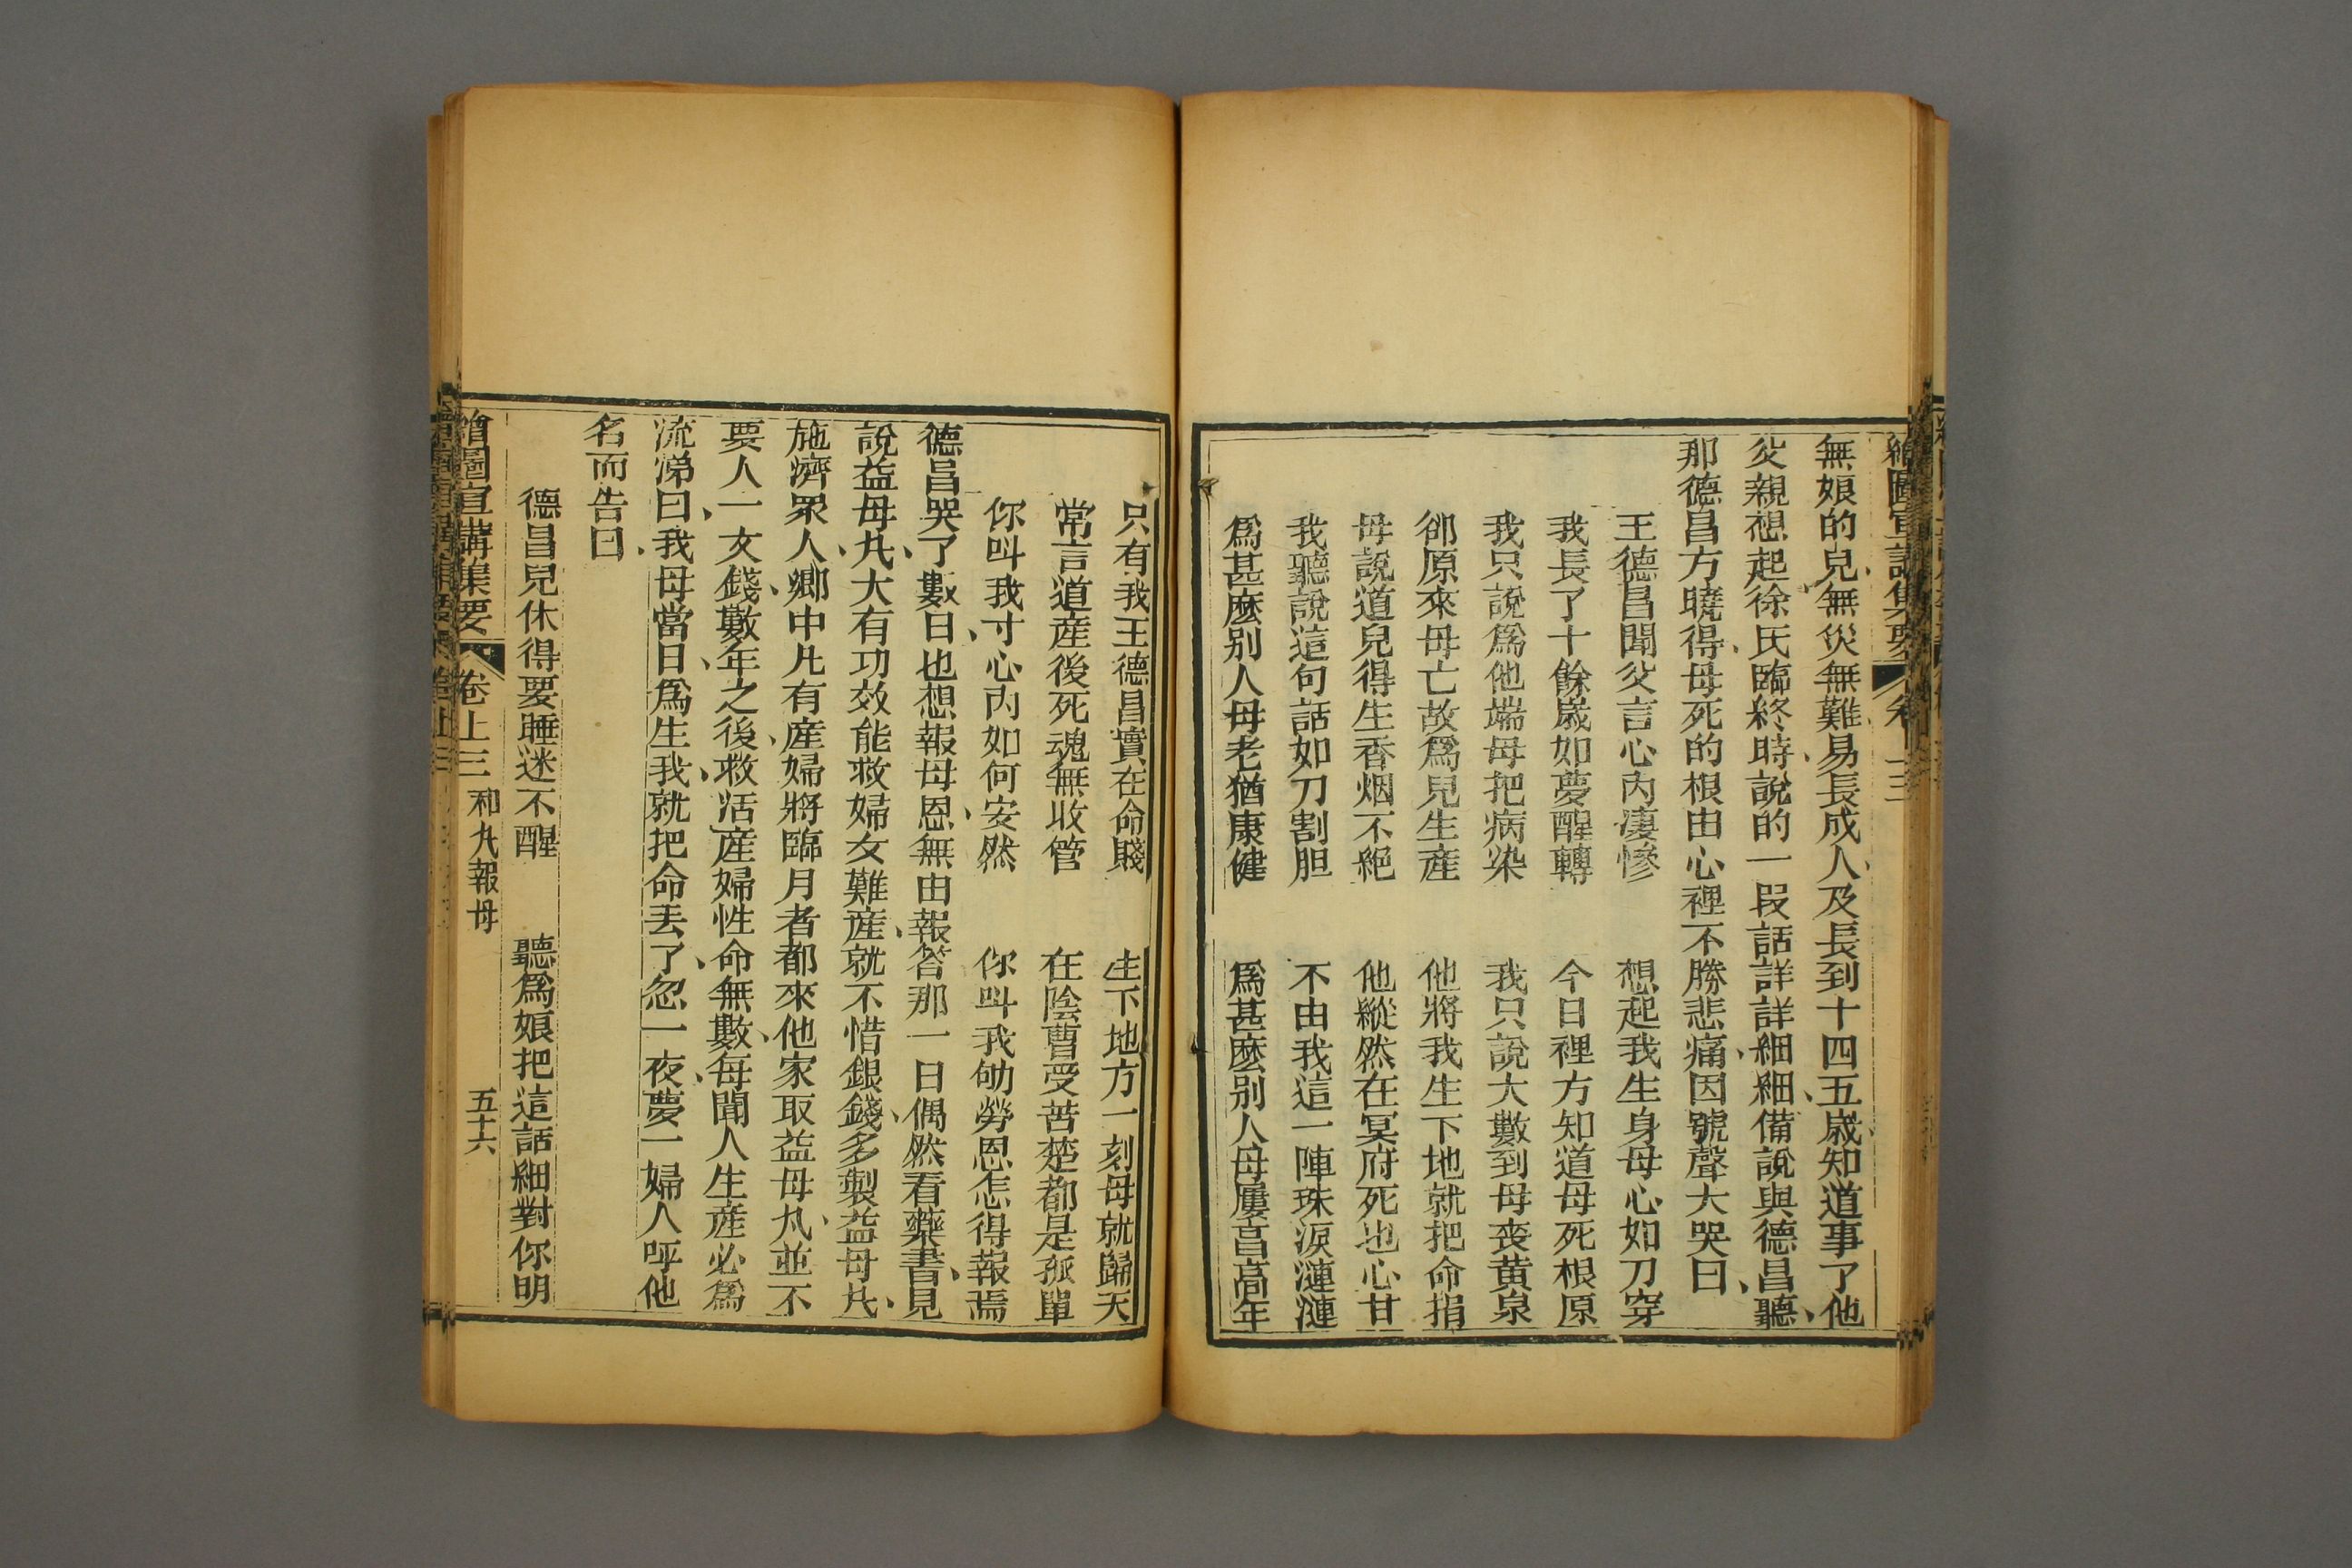 無娘的兒無災無難易長成人及長到十四五歲知道事了他
父親想起徐氏臨終時說的一段話詳詳細細備說與德昌聽
那德昌方曉得母死的根由心裡不勝悲痛因號聲大哭曰
王德昌聞父言心內淒慘 想起我生身母心如刀穿
我長了十餘歲如夢醒轉 今日裡方知道母死根原
我只說爲他端母把病染 我只說大數到母喪黃泉
卻原來母亡故爲兒生產 他將我生下地就把命捐
母說道兒得生香烟不絕 他縱然在冥府死也心甘
我聽說這句話如刀割胆 不由我這一陣珠淚漣漣
爲甚麽别人母老猶康健 爲甚麽别人母屢享高年
只有我王德昌實在命賤 生下地方一刻母就歸天
常言道產後死魂無收管 在陰曹受苦楚都是孤單
你叫我寸心內如何安然 你叫我劬勞恩怎得報焉
德昌哭了數日也想報母恩無由報答那一日偶然看藥書見
說益母丸大有功效能救婦女難產就不惜銀錢多製益母丸
施濟眾人鄉中凡有產婦將臨月者都來他家取益母丸並不
要人一文錢數年之後救活產婦性命無數每聞人生產必爲
流涕曰我母當日爲生我就把命丟了忽一夜夢一婦人呼他
名而告曰
德昌兒休得要睡迷不醒 聽爲娘把這話細對你明
繪圖宣講集要 卷上三 和丸報母 五十六